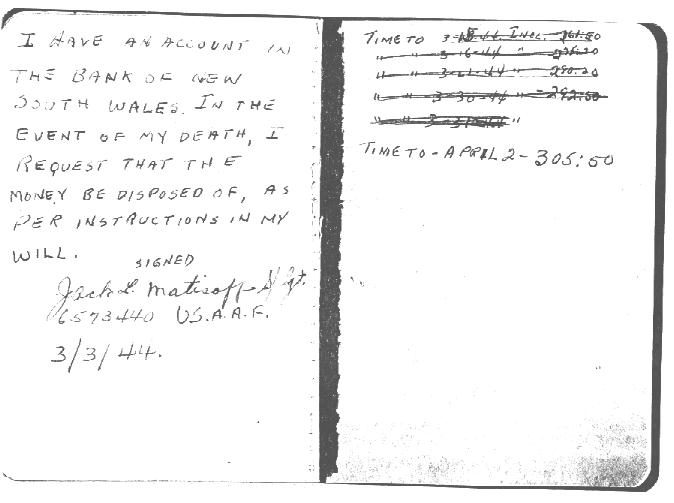 I HAVE AN ACCOUNT IN
THE BANK OF NEW
SOUTH WALES. IN THE
EVENT OF MY DEATH, I
REQUEST THAT THE
MONEY BE DISPOSED OF, AS
PER INSTRUCTIONS IN MY
WILL.
SIGNED
Jack L. Matisoff S/Sgt.
6573440 U.S.A.A.F.
3/3/44.
TIME TO 3- -44 INCL.
" " 3-16-44 "
" " 3-21-44 " 290:20
" " 3-30-44 "
" " "
TIME TO - APRIL 2 - 305:50